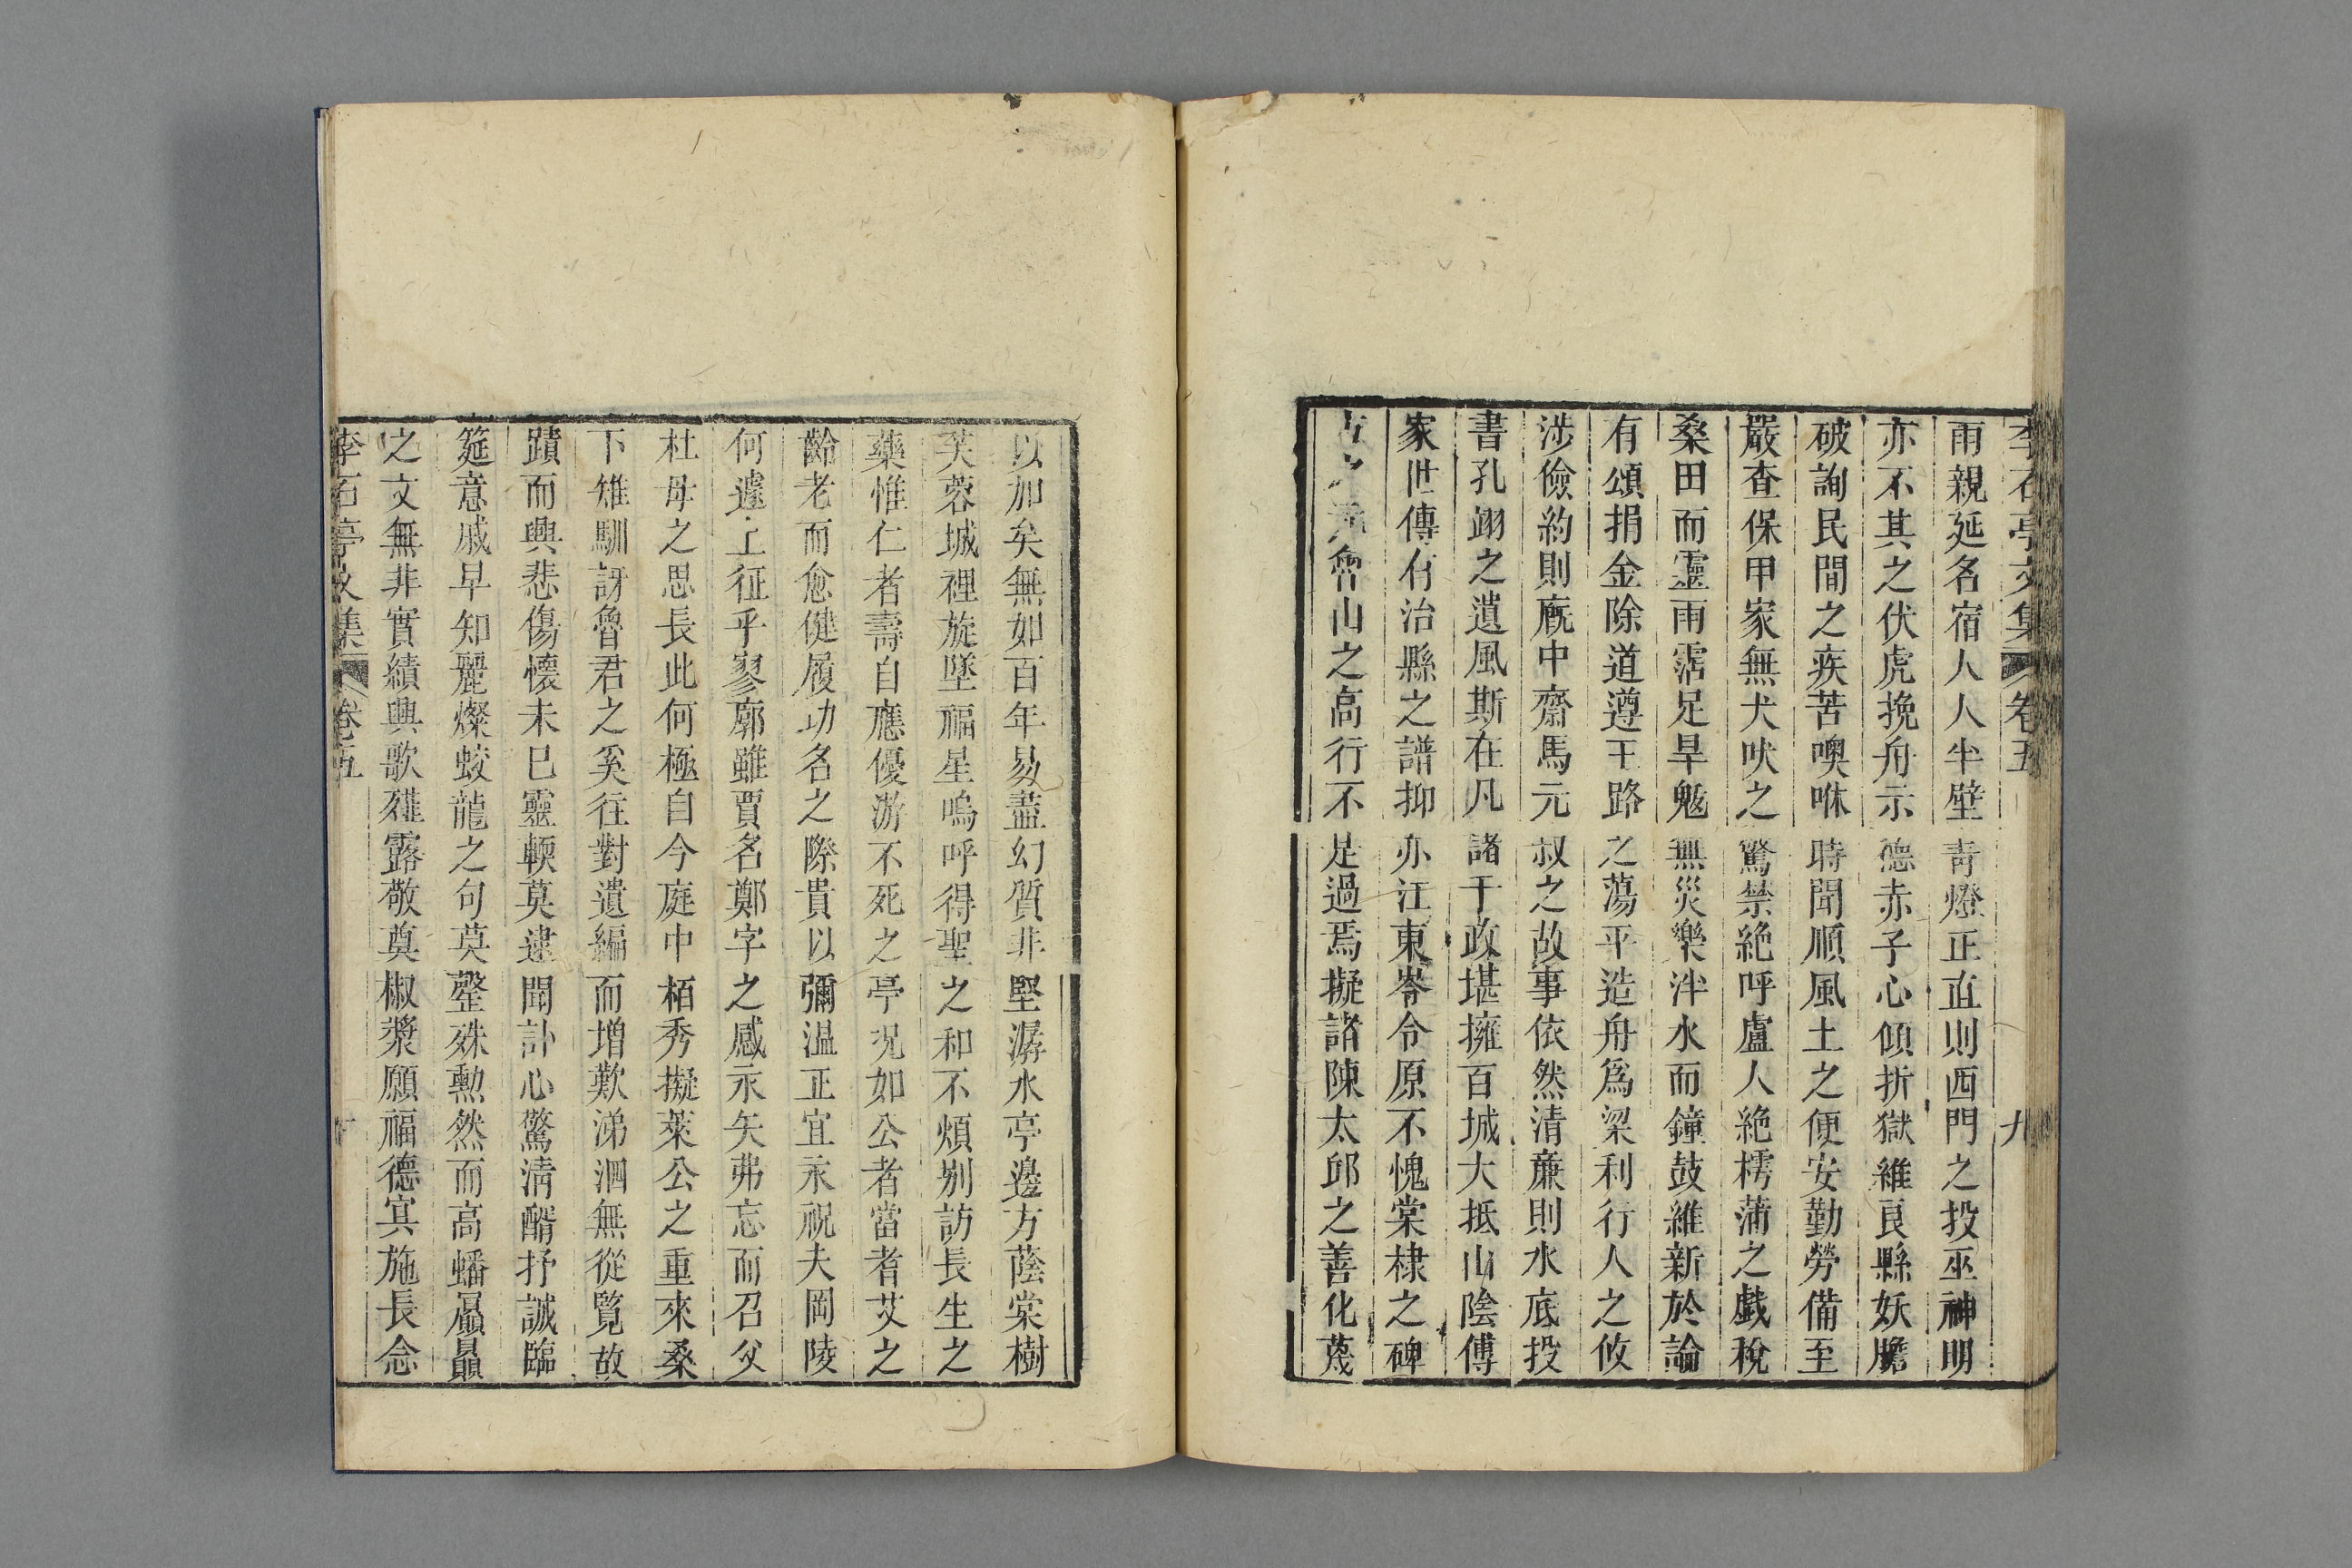 李石亭文集 卷五 九
雨親延名宿人人半壁青燈正直則西門之投巫神明
亦不其之伏虎挽舟示德赤子心傾折獄維良縣妖膽
破詢民間之疾苦噢咻時聞順風土之便安勤勞備至
嚴查保甲家無犬吠之驚禁絶呼盧人絶樗蒲之戲稅
桑田而靈雨霑足旱魃無災樂泮水而鐘鼓維新於論
有頌捐金除道遵王路之蕩平造舟爲梁利行人之攸
涉儉約則廐中齋馬元叔之故事依然清亷則水底投
書孔翊之遺風斯在凡諸干政堪擁百城大抵山陰傅
家世傳有治縣之譜抑亦江東岑令原不愧棠棣之碑
古之 魯山之高行不足過焉擬諸陳太邱之善化蔑
以加矣無如百年易盡幻質非堅潺水亭邊方蔭棠樹
芙蓉城裡旋墜福星嗚呼得聖之和不煩别訪長生之
藥惟仁者壽自應優游不死之亭况如公者當耆艾之
齡老而愈健履功名之際貴以彌溫正宜永祝夫岡陵
何遽上征乎寥廓雖賈名鄭字之感永矢弗忘而召父
杜母之思長此何極自今庭中栢秀擬萊公之重來桑
下雉馴訝魯君之奚往對遺編而增歎涕泗無從覽故
蹟而興悲傷懷未已靈輭莫逮聞訃心驚淸醑抒誠臨
筵意戚早知麗燦蛟龍之句莫罄殊勲然而高蟠贔屭
之文無非實績興歌薤露敬奠椒漿願福德冥施長念
李石亭文集 卷五 十